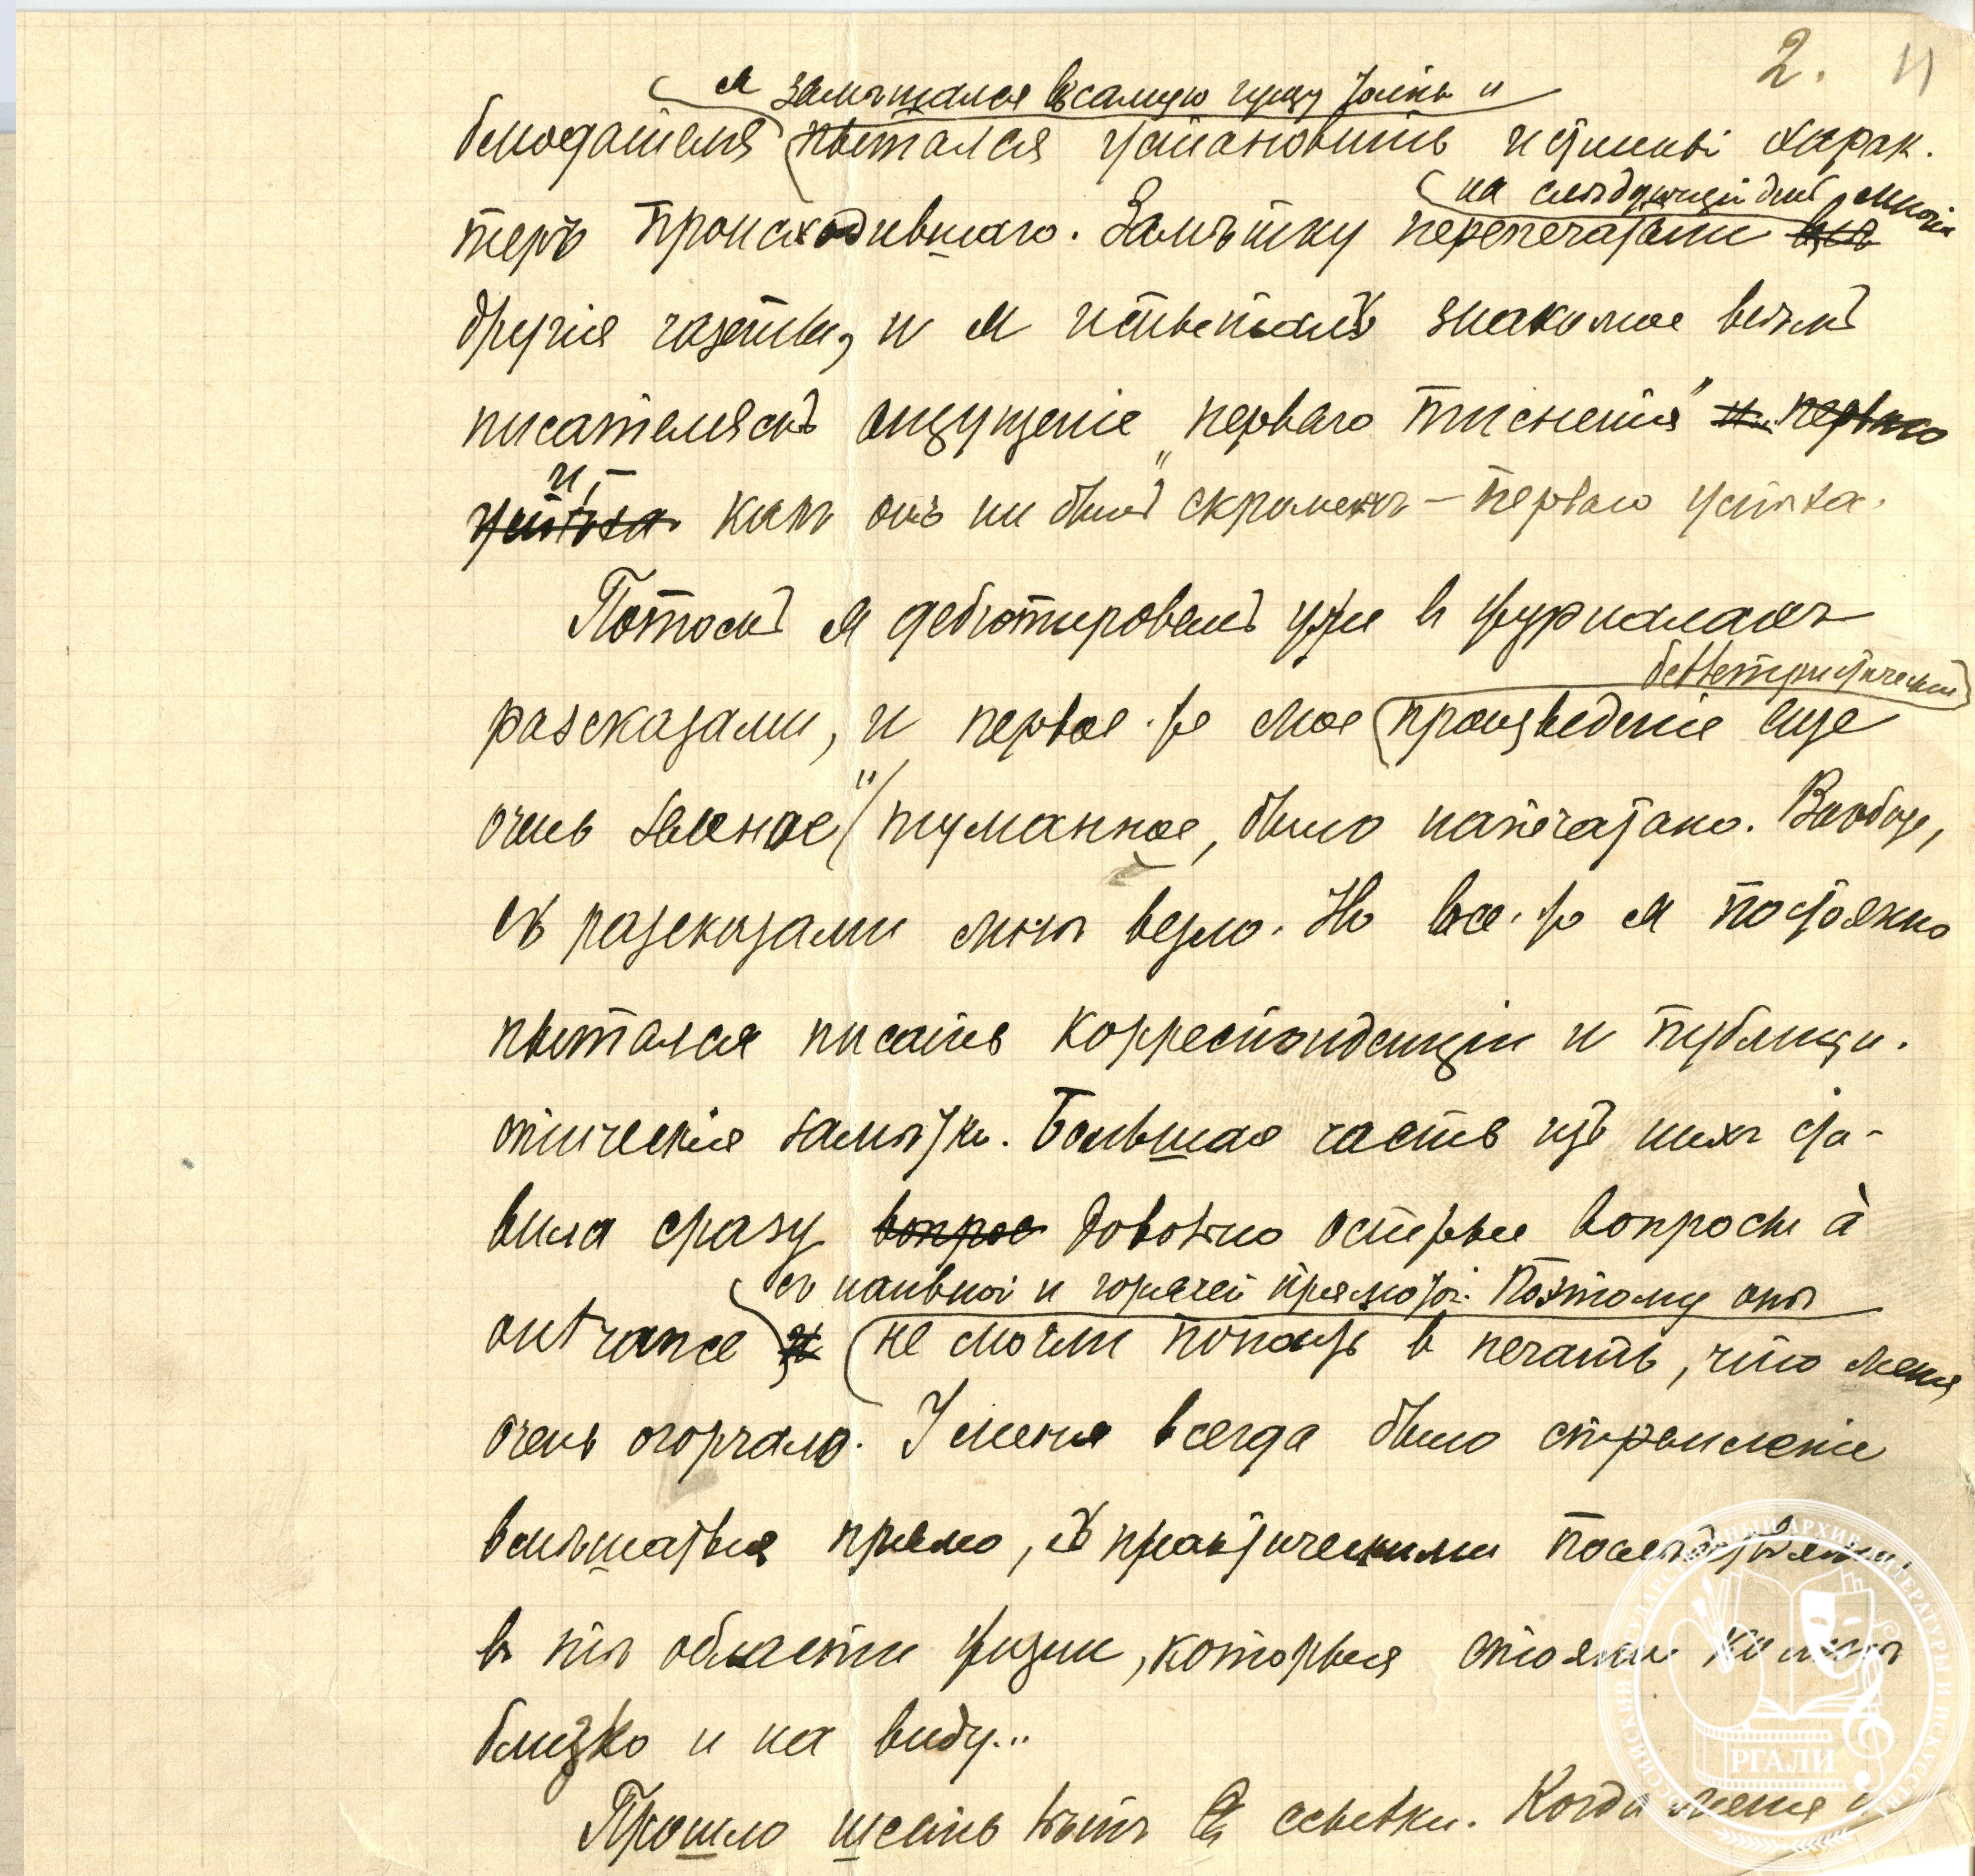 2. 11
я замѣшался въ самую гущу толпы и
блюдателя пытался установить истинный харак-
на слѣдующій день многія
теръ происходившаго. Замѣтку перепечатали всѣ
другія газеты, и я испыталъ знакомое всѣмъ
писателямъ ощущеніе „перваго тисненія" и перваго
и,
успѣха какъ онъ ни былъ скроменъ – перваго успѣха.
Потомъ я дебютировалъ уже въ журналахъ
беллетристическое
разсказами, и первое-же мое произведеніе еще
очень зеленое и туманное, было напечатано. Вообще,
съ разсказами мнѣ везло. Но все-же я постоянно
пытался писать корреспонденціи и публици-
стическія замѣтки. Большая часть изъ нихъ ста-
вила сразу вопрос довольно острые вопросы à
съ наивной и горячей прямотой. Поэтому онѣ
outrance и не могли попасть въ печать, что меня
очень огорчало. У меня всегда было стремленіе
вмѣшаться прямо, съ практическими послѣдствіями,
въ тѣ области жизни, которыя стояли ко мнѣ
близко и на виду...
Прошло шесть лѣтъ ссылки. Когда меня
РОССИЙСКИЙ ГОСУДАРСТВЕННЫЙ АРХИВ ЛИТЕРАТУРЫ И ИСКУССТВА
РГАЛИ